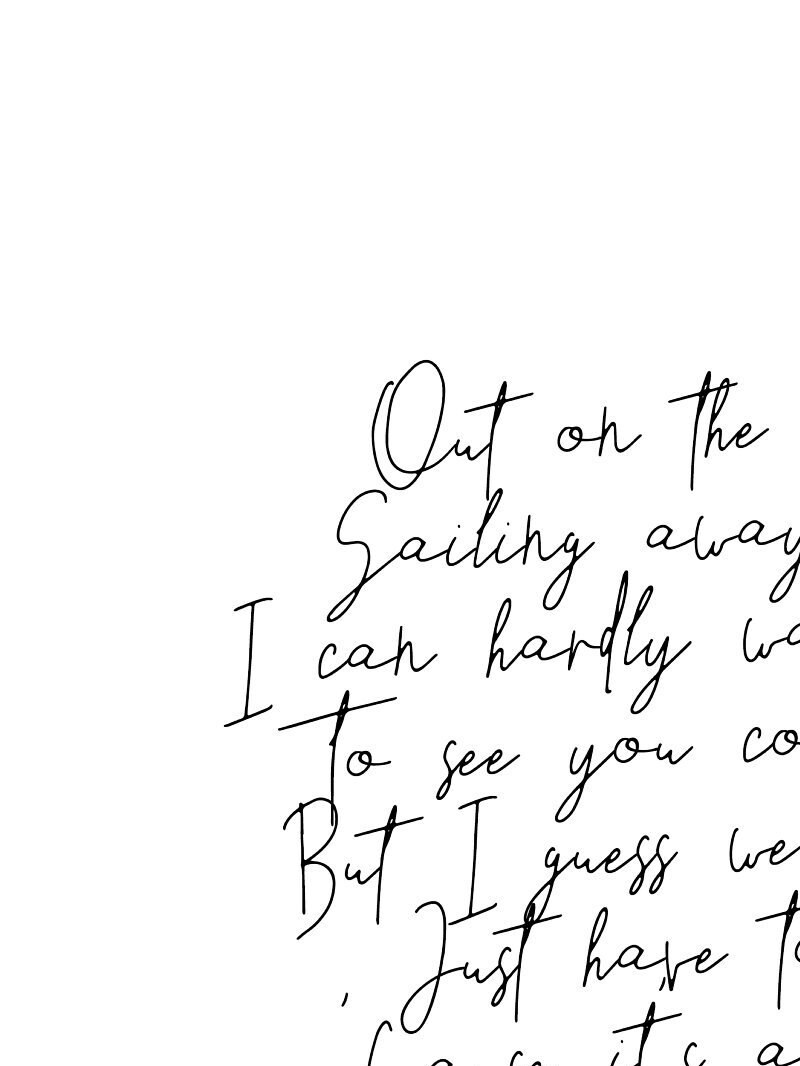 Out on the
Sailing away
I can hardly wa
to see you co
But I guess we
Just have to
'Cause it's a